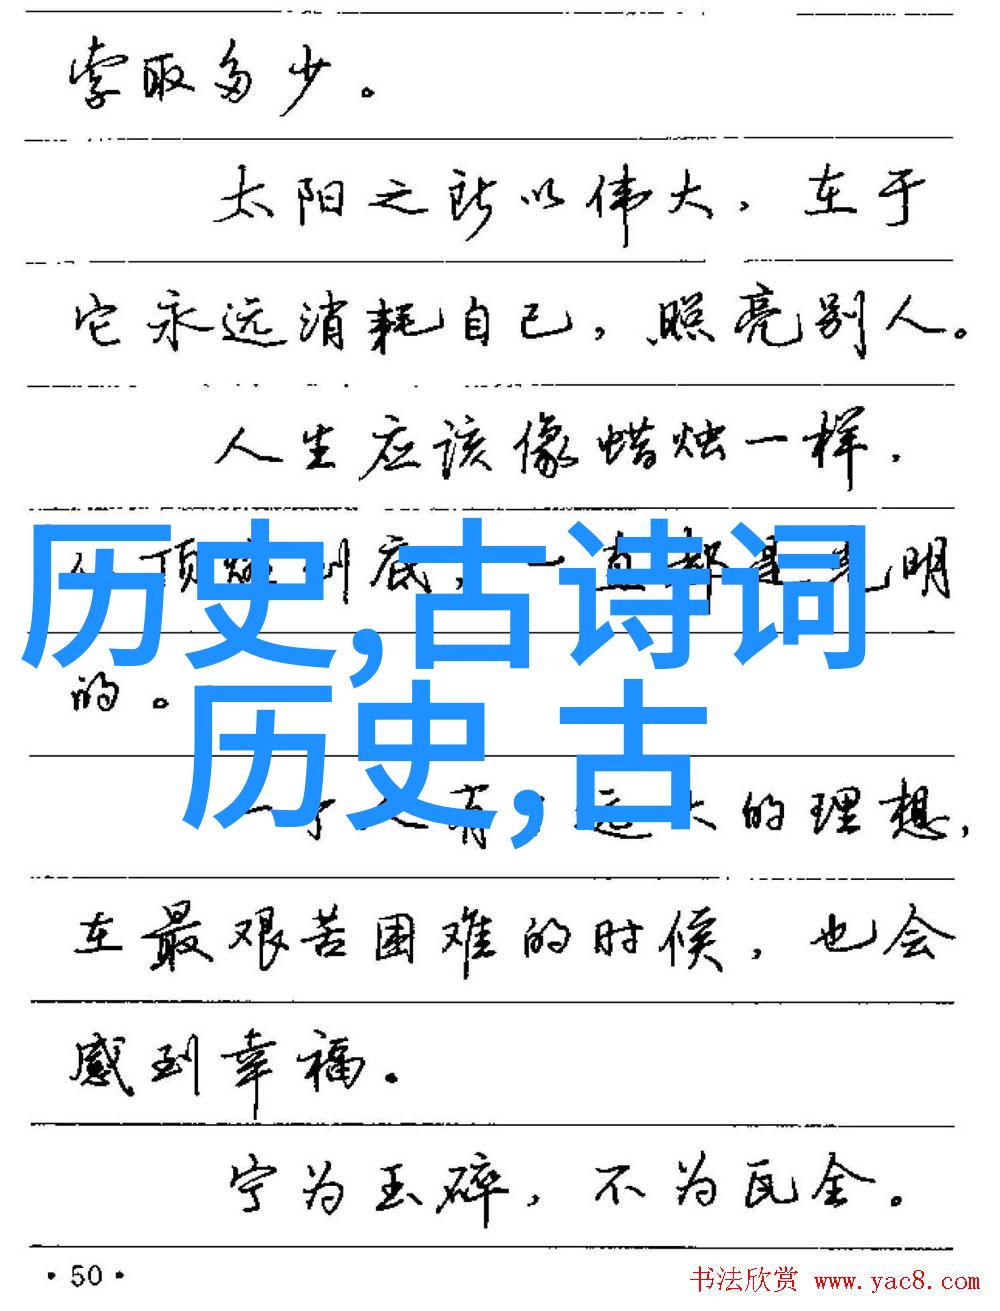 索取多少。
太阳之所以伟大，在于
它永远消耗自己，照亮别人。
人生应该像蜡烛一样，
顶 到底，一直都是光明
历史,古诗词
的。
历史,古
一个人有了远大的理想，
在最艰苦困难的时候，也会
感到幸福。
宁为玉碎，不为瓦全。
·50·
书法欣赏 www.yac8.com